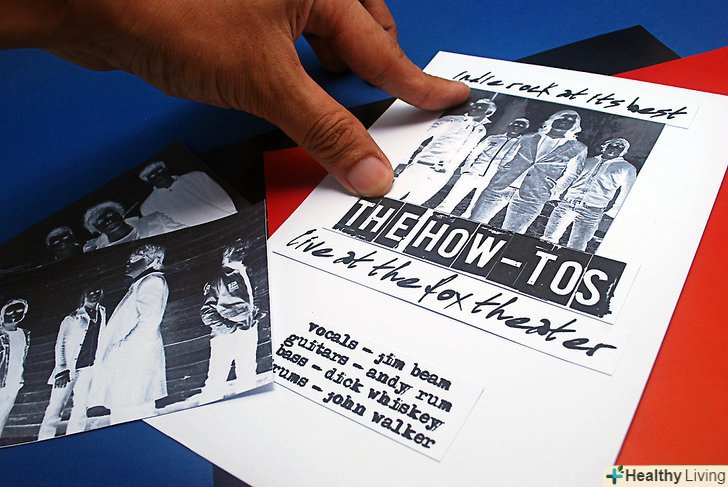 indie rock at its best
THE HOW-TOS
live at the fox theater
vocals - jim beam
guitars - andy rum
bass - dick whiskey
rums - john walker
Healthy Living